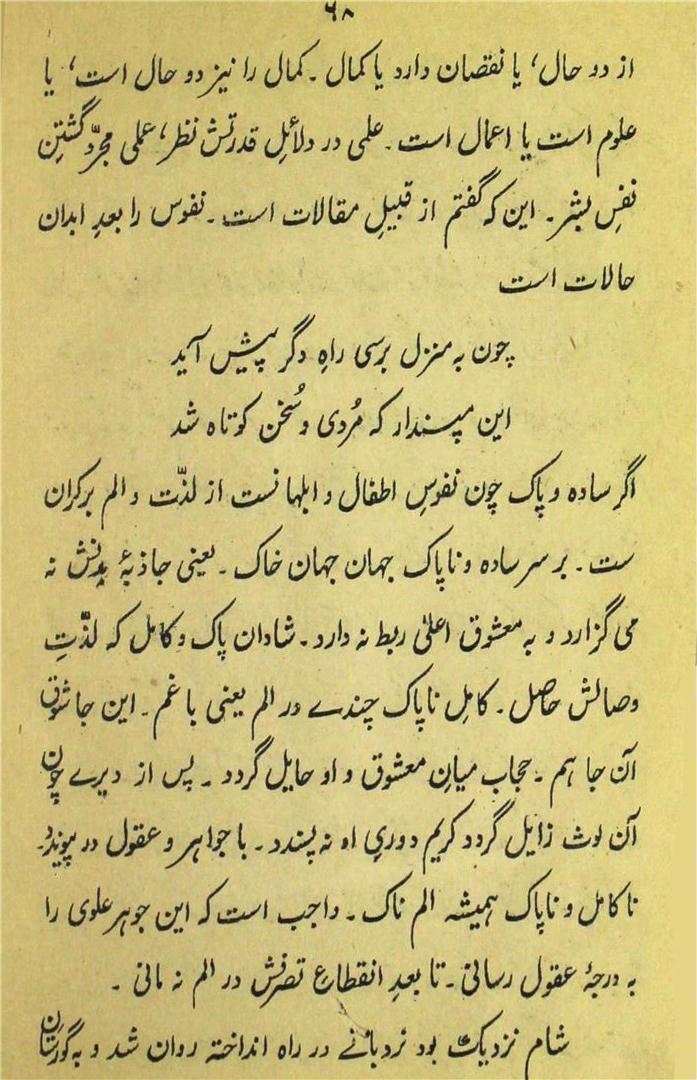 ۶۸
از دو حال، یا نقصان دارد یا کمال۔ کمال را نیز دو حال است، یا
علوم است یا اعمال است۔ علمی در دلائلِ قدرتش نظر، عملی مجرّد گشتنِ
نفسِ بشر۔ این که گفتم از قبیلِ مقالات است۔ نفوس را بعدِ ابدان
حالات است
چون به منزل برسی راهِ دگر پیش آید
این مپندار که مُردی و سُخن کوتاه شد
اگر ساده و پاک چون نفوسِ اطفال و ابلها نست از لذّت و الم برکران
ست۔ بر سر ساده و ناپاک جهان جهان خاک۔ یعنی جاذبۀ بدنش نه
می گزارد و به معشوق اعلیٰ ربط نه دارد۔ شادان پاک و کامل که لذّتِ
وصالش حاصل۔ کاملِ ناپاک چندے در الم یعنی با غم۔ این جا شوق
آن جا هم۔ حجاب میانِ معشوق و او حایل گردد۔ پس از دیرے چون
آن لوث زایل گردد کریم دوریِ او نه پسندد۔ با جواهر و عقول در پیوندد۔
نا کامل و ناپاک همیشه الم ناک۔ واجب است که این جوهر علوی را
به درجۀ عقول رسانی۔ تا بعدِ انقطاع تصرفش در الم نه مانی۔
شام نزدیک بود نردبانے در راه انداخته روان شد و به گورستان